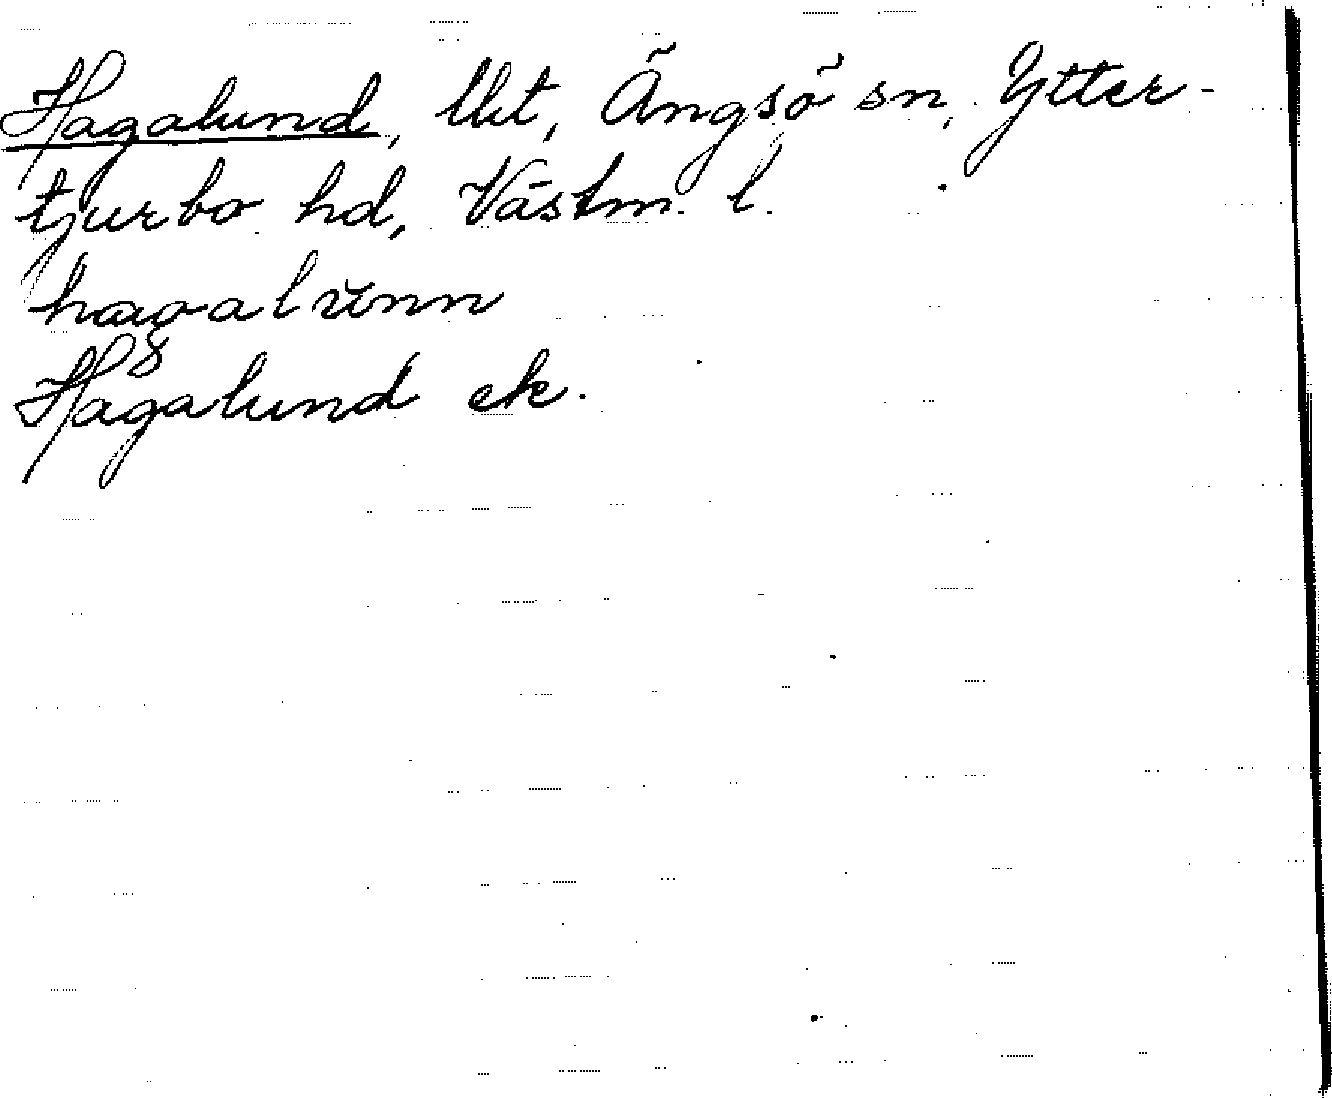 Hagalund, lht, Ängsö sn, Ytter-
tjurbo hd, Västm. l.
hagalŭnn
Hagalund ek.